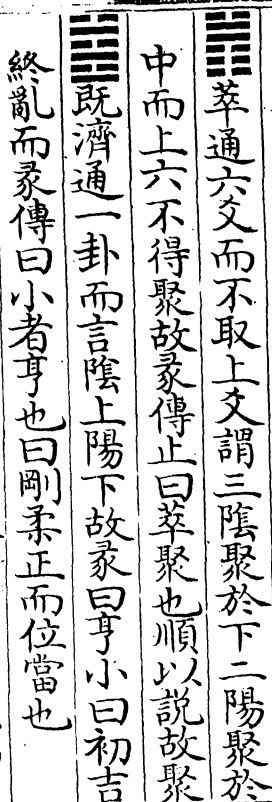 ䷬萃通六爻而不取上爻謂三陰聚於下二陽聚於
中而上六不得聚故彖傳止曰萃聚也順以説故聚
䷾既濟通一卦而言陰上陽下故彖曰亨小曰初吉
終亂而彖傳曰小者亨也曰剛柔正而位當也